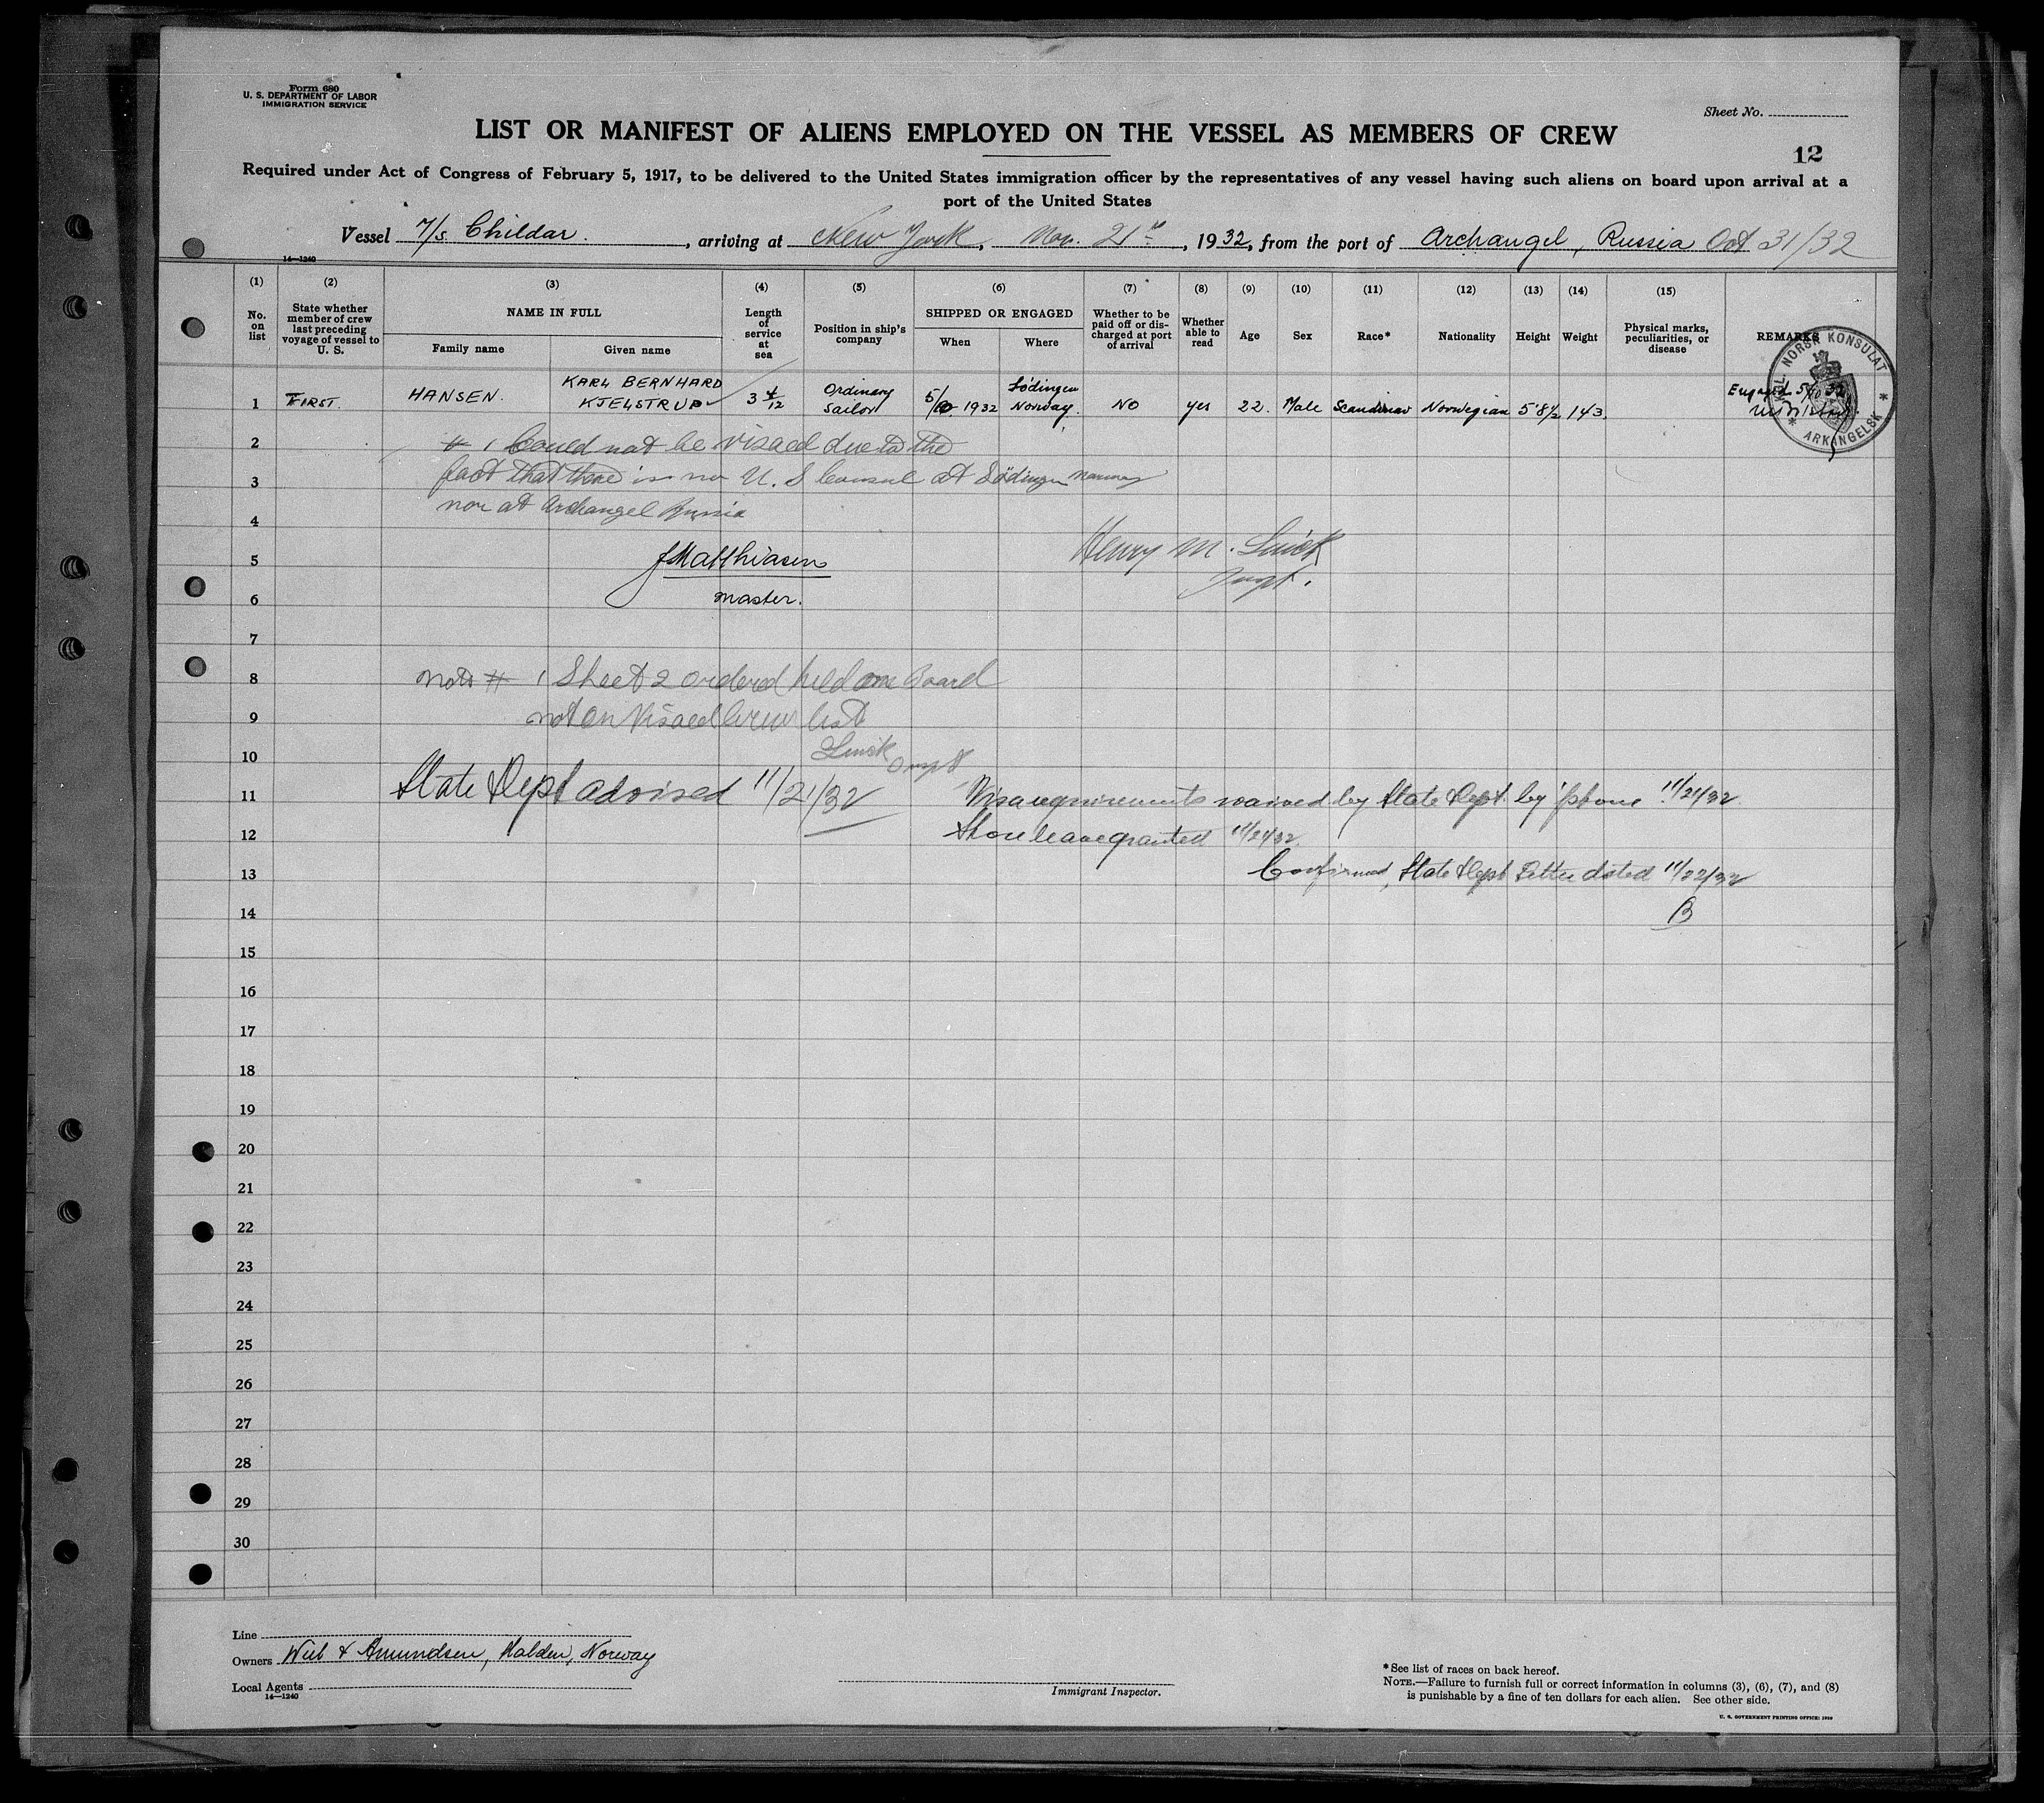 Form 680
U. S. DEPARTMENT OF LABOR
IMMIGRATION SERVICE
Sheet No.
LIST OR MANIFEST OF ALIENS EMPLOYED ON THE VESSEL AS MEMBERS OF CREW
12
Required under Act of Congress of February 5, 1917, to be delivered to the United States immigration officer by the representatives of any vessel having such aliens on board upon arrival at a
port of the United States
Vessel M/s Childar. , arriving at New York, Nov. 21st, 1932, from the port of Archangel, Russia Oct 31/32
14—1240
(1) (2) (3) (4) (5) (6) (7) (8) (9) (10) (11) (12) (13) (14) (15)
No. on list
State whether member of crew last preceding voyage of vessel to U. S.
NAME IN FULL
Family name
Given name
Length of service at sea
Position in ship's company
SHIPPED OR ENGAGED
When
Where
Whether to be paid off or discharged at port of arrival
Whether able to read
Age
Sex
Race*
Nationality
Height
Weight
Physical marks, peculiarities, or disease
REMARKS
KGL. NORSK KONSULAT * ARKANGELSK *
1 FIRST. HANSEN. KARL BERNHARD KJELSTRUP 3 4/12 Ordinary Sailor 5/10 1932 Lödingen Norway. NO yes 22. Male Scandinav Norwegian 5'8½ 143. Engaged 5/10 32
2 # 1 Could not be visaed due to the
3 fact that there is no U. S Consul at Lödingen Norway
4 nor at Archangel Russia
5 J Matthiasen Henry M.
6 master. Inspt.
7
8 Note # 1 Sheet 2 ordered held on Board
9 not on Visaed Crew list
10 Inspt
11 State Dept advised 11/21/32 Visa requirements waived by State Dept. by 'phone 11/21/32.
12 Shore leave granted 11/21/32.
13 Confirmed, State Dept Letter dated 11/22/32
14 B
15
16
17
18
19
20
21
22
23
24
25
26
27
28
29
30
Line
Owners Wiel & Amundsen, Halden, Norway
Local Agents
14—1240
Immigrant Inspector.
*See list of races on back hereof.
NOTE.—Failure to furnish full or correct information in columns (3), (6), (7), and (8)
is punishable by a fine of ten dollars for each alien. See other side.
U. S. GOVERNMENT PRINTING OFFICE: 1929